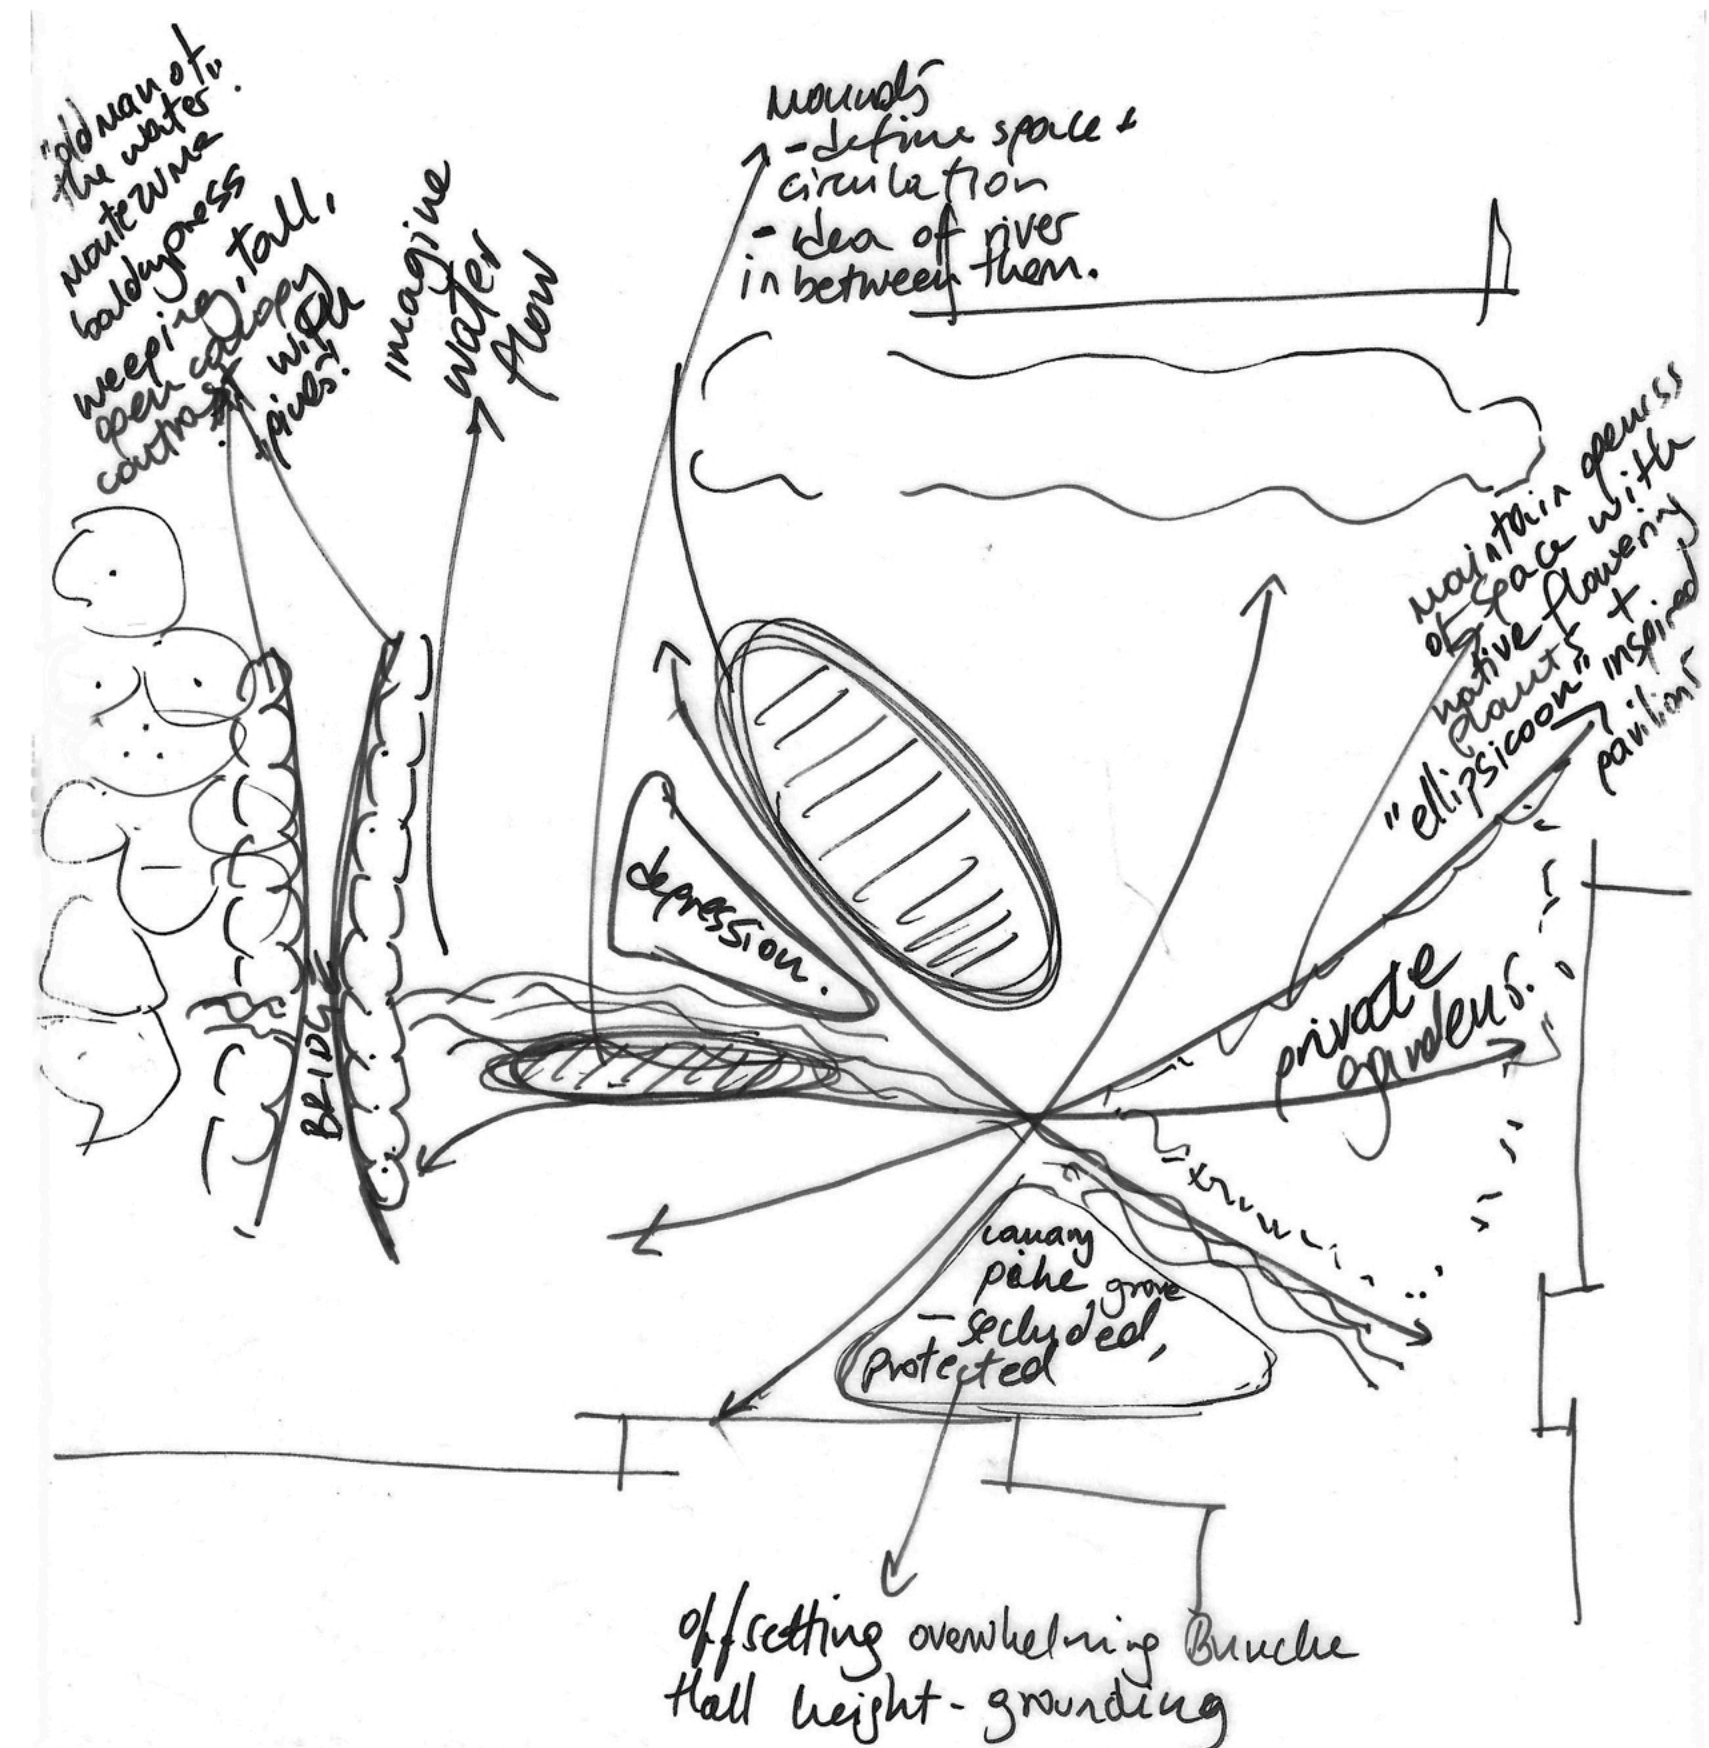 "old man of
the water".
Montezuma
baldcypress
weeping, tall,
open canopy
contrast with
pines!
imagine
water
flow
Mounds
- define space +
circulation
- idea of river
in between them.
maintain openess
of space with
native flowering
plants +
"ellipsicoon" inspired
pavilions
depression.
BRIDGE
private
gardens.
canary
pine grove
- secluded,
protected
offsetting overwhelming Bunche
Hall height - grounding